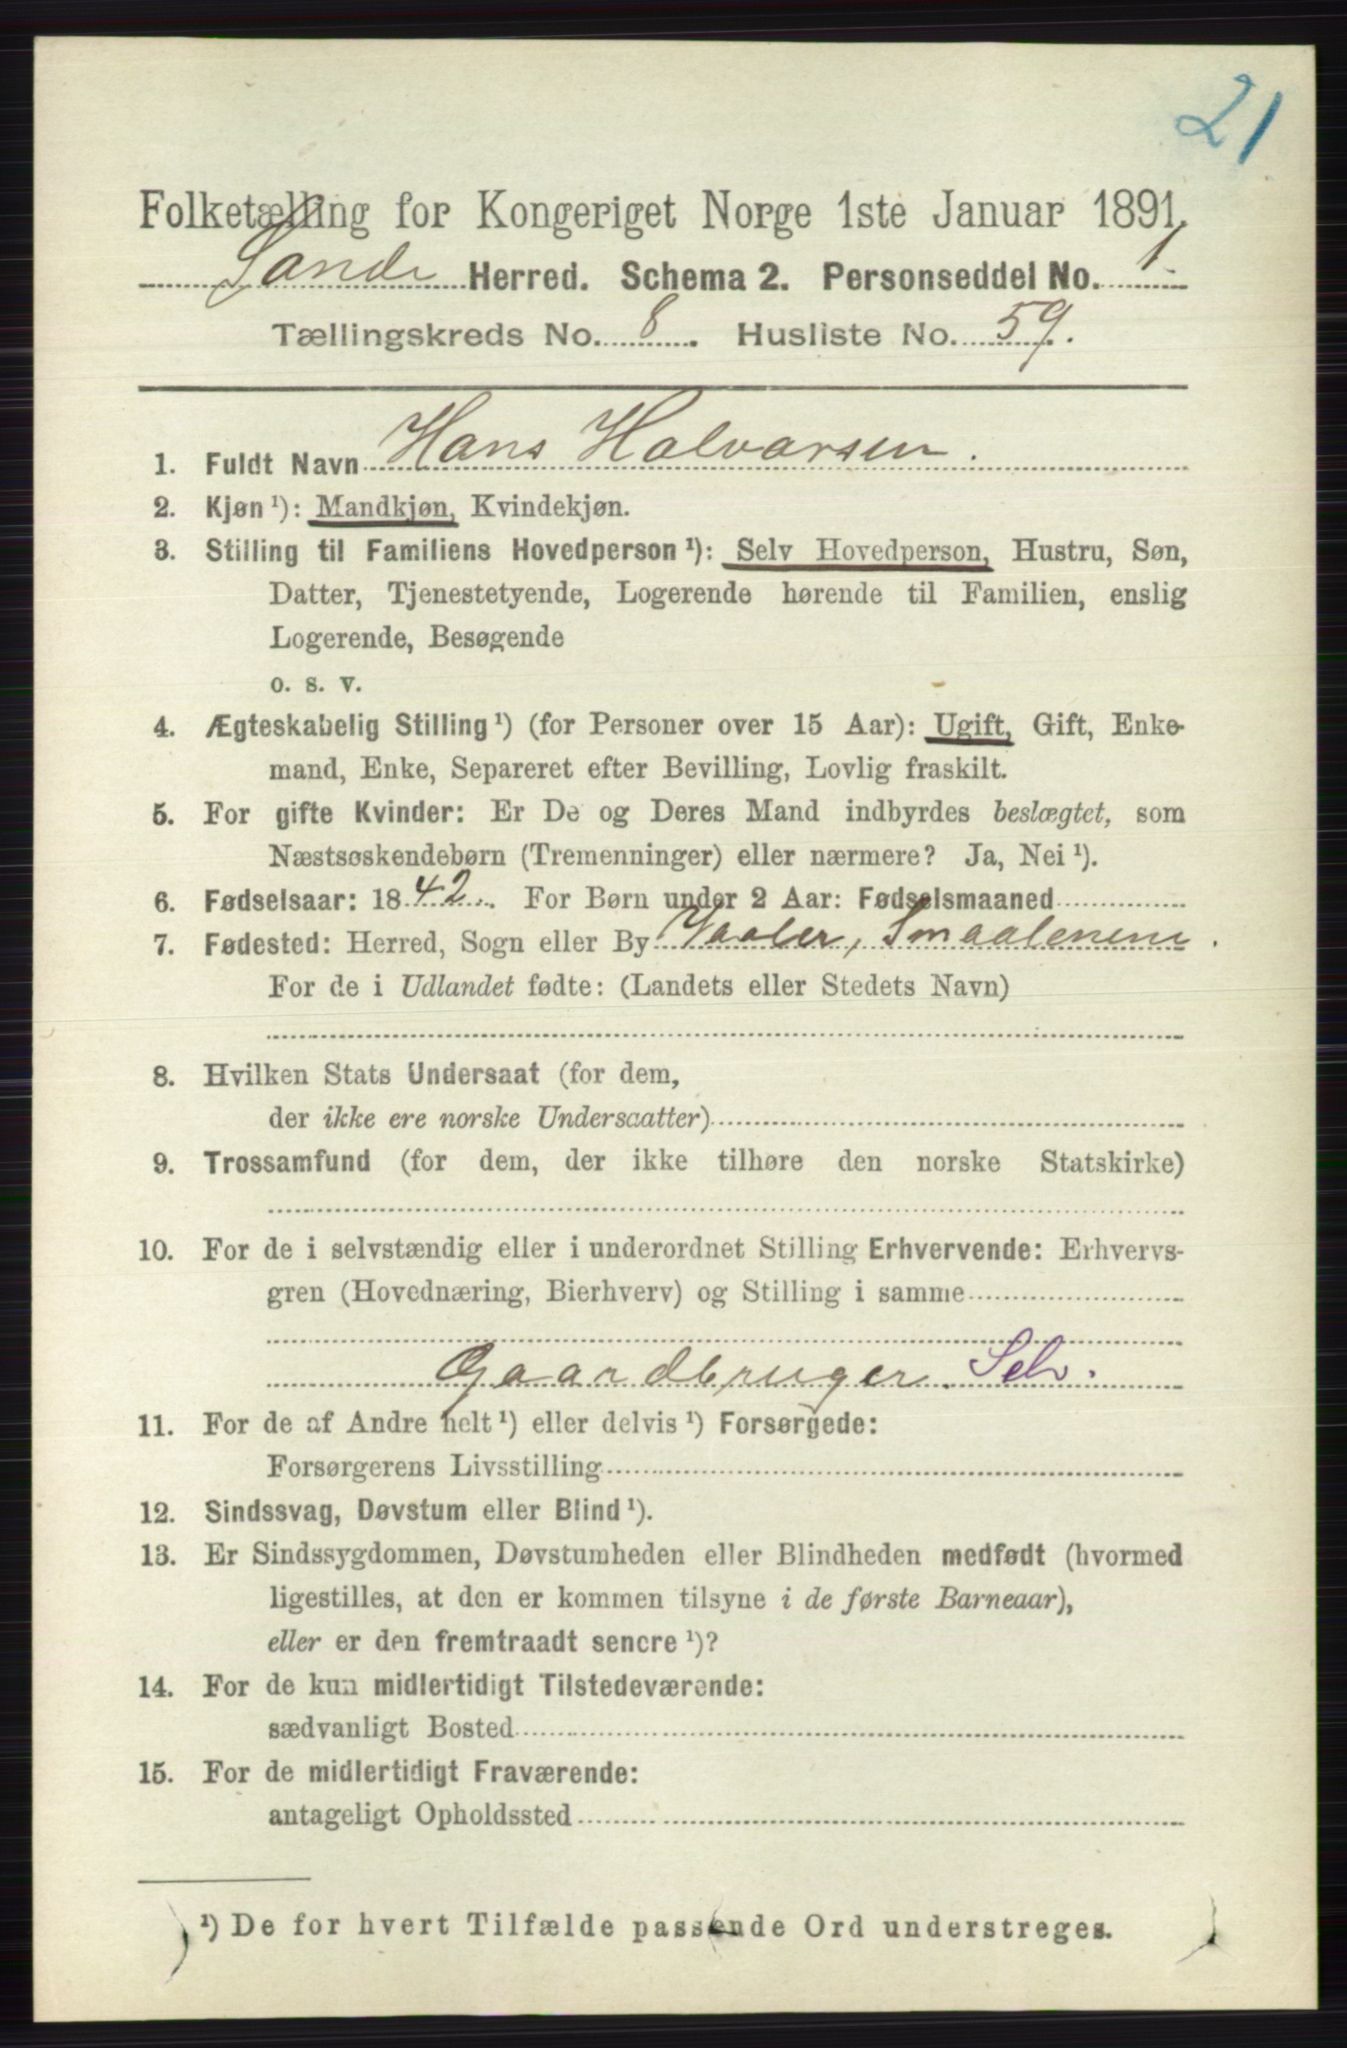 21
Folketælling for Kongeriget Norge 1ste Januar 1891.
Sande Herred. Schema 2. Personseddel No. 1
Tællingskreds No. 8. Husliste No. 59.
1. Fuldt Navn Hans Halvorsen.
2. Kjøn ¹): Mandkjøn, Kvindekjøn.
3. Stilling til Familiens Hovedperson ¹): Selv Hovedperson, Hustru, Søn,
Datter, Tjenestetyende, Logerende hørende til Familien, enslig
Logerende, Besøgende
o. s. v.
4. Ægteskabelig Stilling ¹) (for Personer over 15 Aar): Ugift, Gift, Enke-
mand, Enke, Separeret efter Bevilling, Lovlig fraskilt.
5. For gifte Kvinder: Er De og Deres Mand indbyrdes beslægtet, som
Næstsøskendebørn (Tremenninger) eller nærmere? Ja, Nei ¹).
6. Fødselsaar: 1842. For Børn under 2 Aar: Fødselsmaaned
7. Fødested: Herred, Sogn eller By Vaaler, Smaalenene.
For de i Udlandet fødte: (Landets eller Stedets Navn)
8. Hvilken Stats Undersaat (for dem,
der ikke ere norske Undersaatter)
9. Trossamfund (for dem, der ikke tilhøre den norske Statskirke)
10. For de i selvstændig eller i underordnet Stilling Erhvervende: Erhvervs-
gren (Hovednæring, Bierhverv) og Stilling i samme
Gaardbruger. Selv.
11. For de af Andre helt ¹) eller delvis ¹) Forsørgede:
Forsørgerens Livsstilling
12. Sindssvag, Døvstum eller Blind ¹).
13. Er Sindssygdommen, Døvstumheden eller Blindheden medfødt (hvormed
ligestilles, at den er kommen tilsyne i de første Barneaar),
eller er den fremtraadt senere ¹)?
14. For de kun midlertidigt Tilstedeværende:
sædvanligt Bosted
15. For de midlertidigt Fraværende:
antageligt Opholdssted
¹) De for hvert Tilfælde passende Ord understreges.